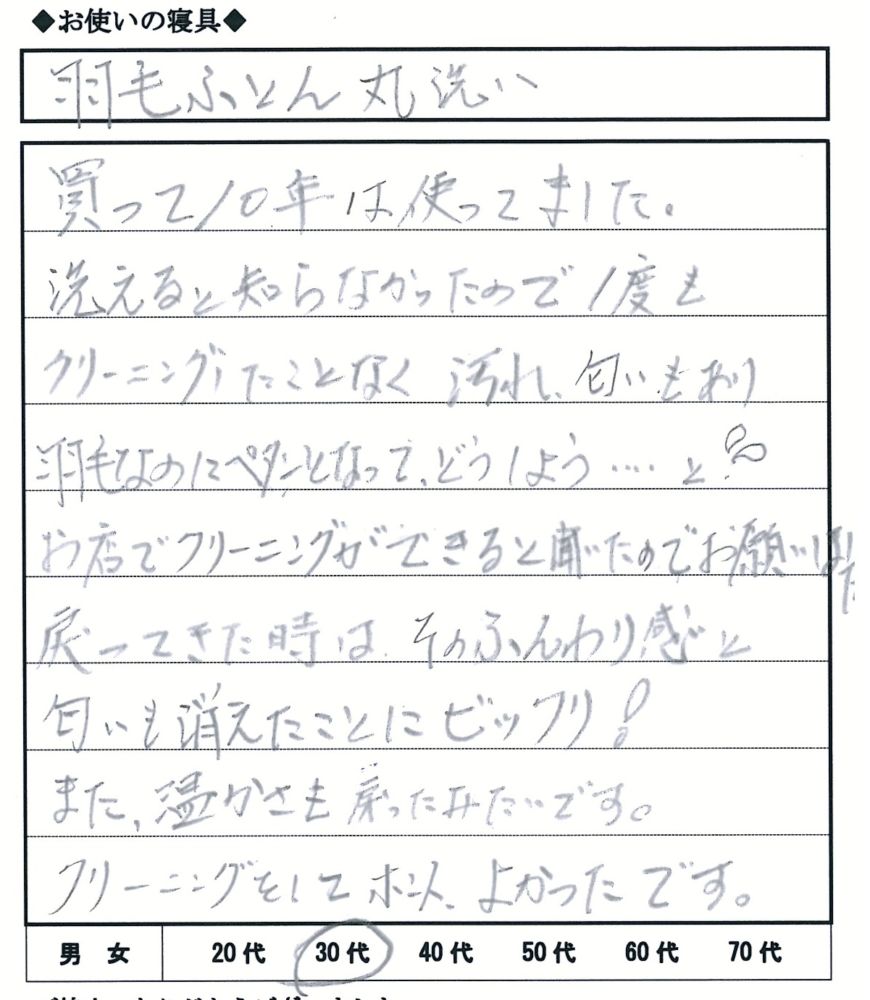 ◆お使いの寝具◆
羽毛ふとん丸洗い
買って10年は使ってました。
洗えると知らなかったので1度も
クリーニングしたことなく 汚れ、匂いもあり
羽毛なのにペタンとなって、どうしよう‥‥と
お店でクリーニングができると聞いたのでお願いしました
戻ってきた時は そのふんわり感と
匂いも消えたことにビックリ!
また、温かさも戻ったみたいです。
クリーニングをしてホント、よかったです。
男 女 20代 30代 40代 50代 60代 70代